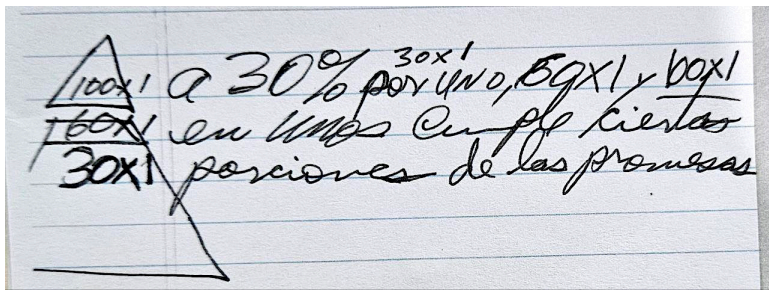 30x1
100x1 a 30% por uno, 59x1, y 60x1
60x1 en unos Cumple ciertas
30x1 porciones de las promesas